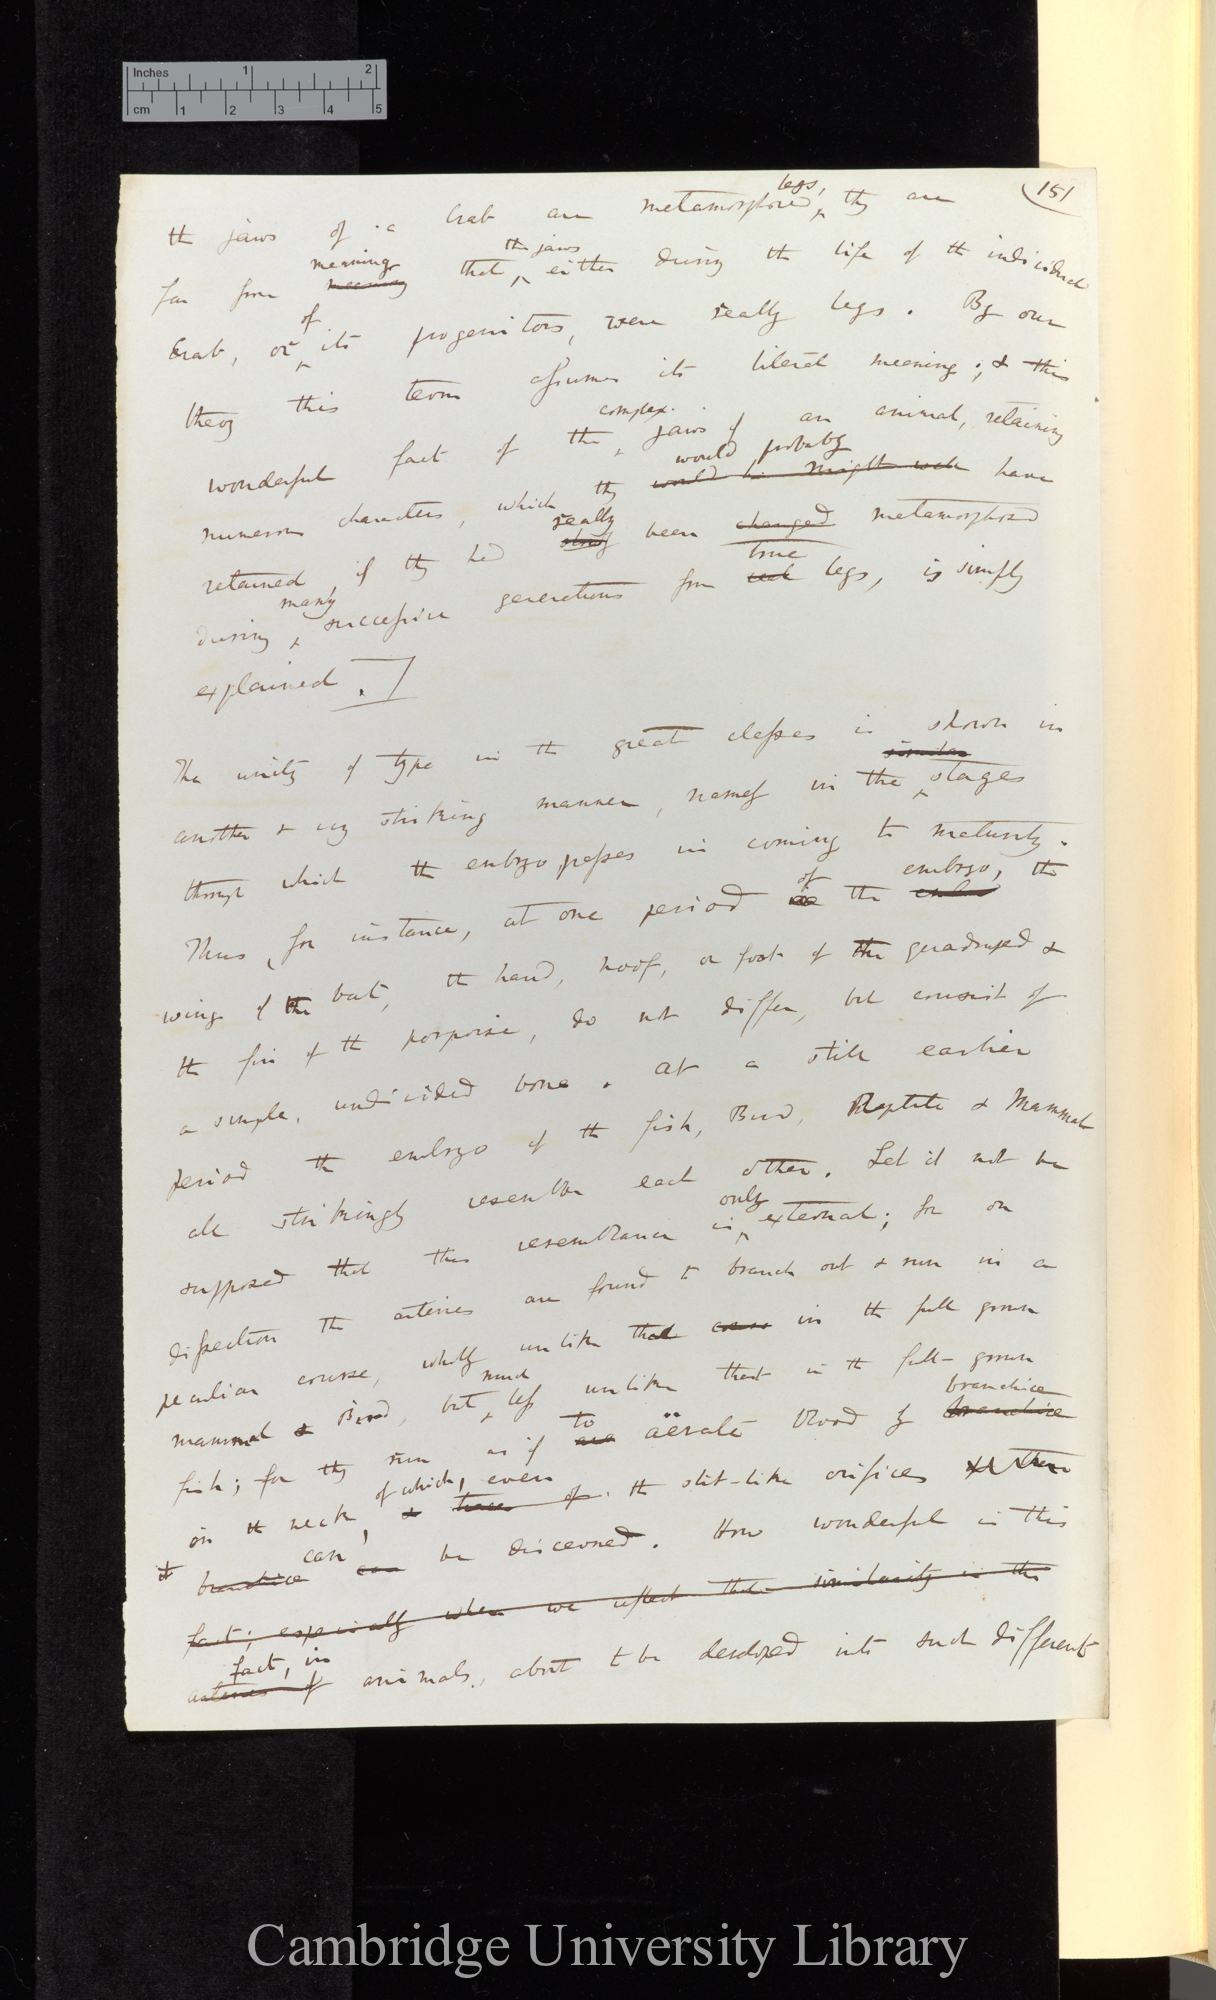 Inches 1 2
cm 1 2 3 4 5
151
the jaws of a Crab are metamorphosed legs, they are
far from meaning meaning that the jaws either during the life of the individual
Crab, or of its progenitors, were really legs. By our
theory this term assumes its literal meaning; & this
wonderful fact of the complex jaws of an animal, retaining
numerous characters, which they would probably would be might well have
retained, if they had really been changed metamorphosed
during many successive generations from true legs, is simply
explained.]
The unity of type in the great classes is shown in
another & very striking manner, namely in the similar stages
through which the embryo passes in coming to maturity.
Thus, for instance, at one period of the embryo, the
wing of the bat, the hand, hoof, or foot of the quadruped &
the fin of the porpoise, do not differ, but consist of
a simple, undivided bone. At a still earlier
period the embryo of the fish, Bird, Reptile & Mammal
all strikingly resemble each other. Let it not be
supposed that this resemblance is only external; for on
dissection the arteries are found to branch out & run in a
peculiar course, wholly unlike that course in the full grown
mammal & Bird, but much less unlike that in the full-grown
fish; for they run as if to aërate blood by branchiæ branchiæ
on the neck, of which, even & traces of the slit-like orifices
branchiæ can can be discerned. How wonderful is this
fact; especially when we reflect that similarity in the
arteries of fact, in animals, about to be developed into such different
Cambridge University Library